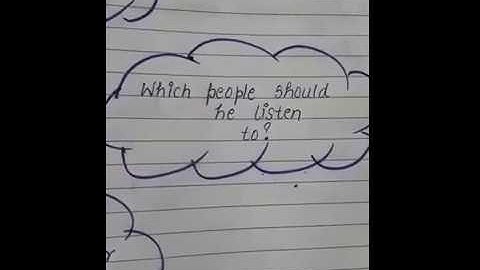 Which people should
he listen
to?